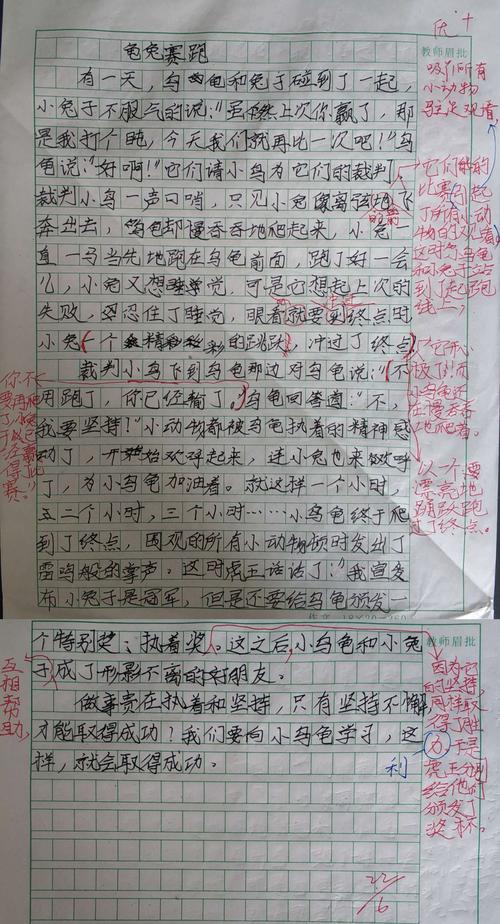 优+
教师眉批
龟兔赛跑
有一天，乌龟和兔子碰到了一起，
小兔子不服气的说：“虽然上次你赢了，那
是我打个盹，今天我们就再比一次吧！”乌
龟说：“好啊！”它们请小鸟为它们的裁判，
裁判小鸟一声口哨，只见小兔像离弦地飞
的箭
奔出去，乌龟却慢吞吞地爬起来，小兔
直一马当先地跑在乌龟前面，跑了好一会
儿，小兔又想睡觉，可是它想起上次的
失败，忍住了睡觉，眼看就要到终点时
小兔一个精彩的跳跃，冲过了终点
裁判小鸟飞到乌龟那边对乌龟说：“不
用跑了，你已经输了，”乌龟回答道：“不，
我要坚持！”小动物都被乌龟执着的精神感
动了，开始欢呼起来，连小兔也来欢呼
了，为小乌龟加油着。就这样一个小时，
二个小时，三个小时……小乌龟终于爬
到了终点，围观的所有小动物顿时发出了
雷鸣般的掌声。这时虎王说话了：“我宣
布小兔子是冠军，但是还要给乌龟颁发一
吸引所有
小动物
驻足观看，
它们的
比赛引起
了所有小动
物的观看，
这时小乌龟
和小兔子站
到了起跑
线上，
小乌龟还
在慢吞吞
地爬着。
以一个
漂亮地
跳跃跑
过了终点。
你不
要再爬
了，小兔
子已
经赢
得了比
赛。”
个特别奖：执着奖。这之后，小乌龟和小兔
子成了形影不离的好朋友。
做事贵在执着和坚持，只有坚持不懈
才能取得成功？我们要向小乌龟学习，这
样，就会取得成功。
教师眉批
互相帮助，
因为它
的坚持，
同样取
得了胜
利
为于是
虎王分别
给他们
颁发了
奖杯。
22/6